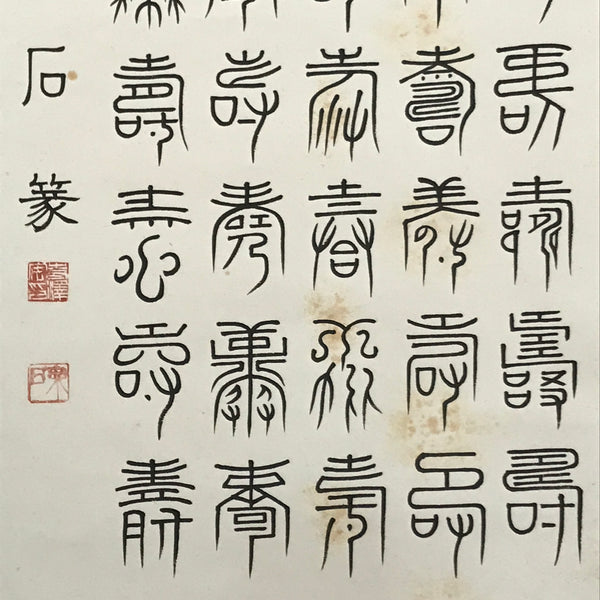 壽壽壽壽
壽壽壽壽
壽壽壽壽
壽壽壽壽
壽壽壽壽
石篆